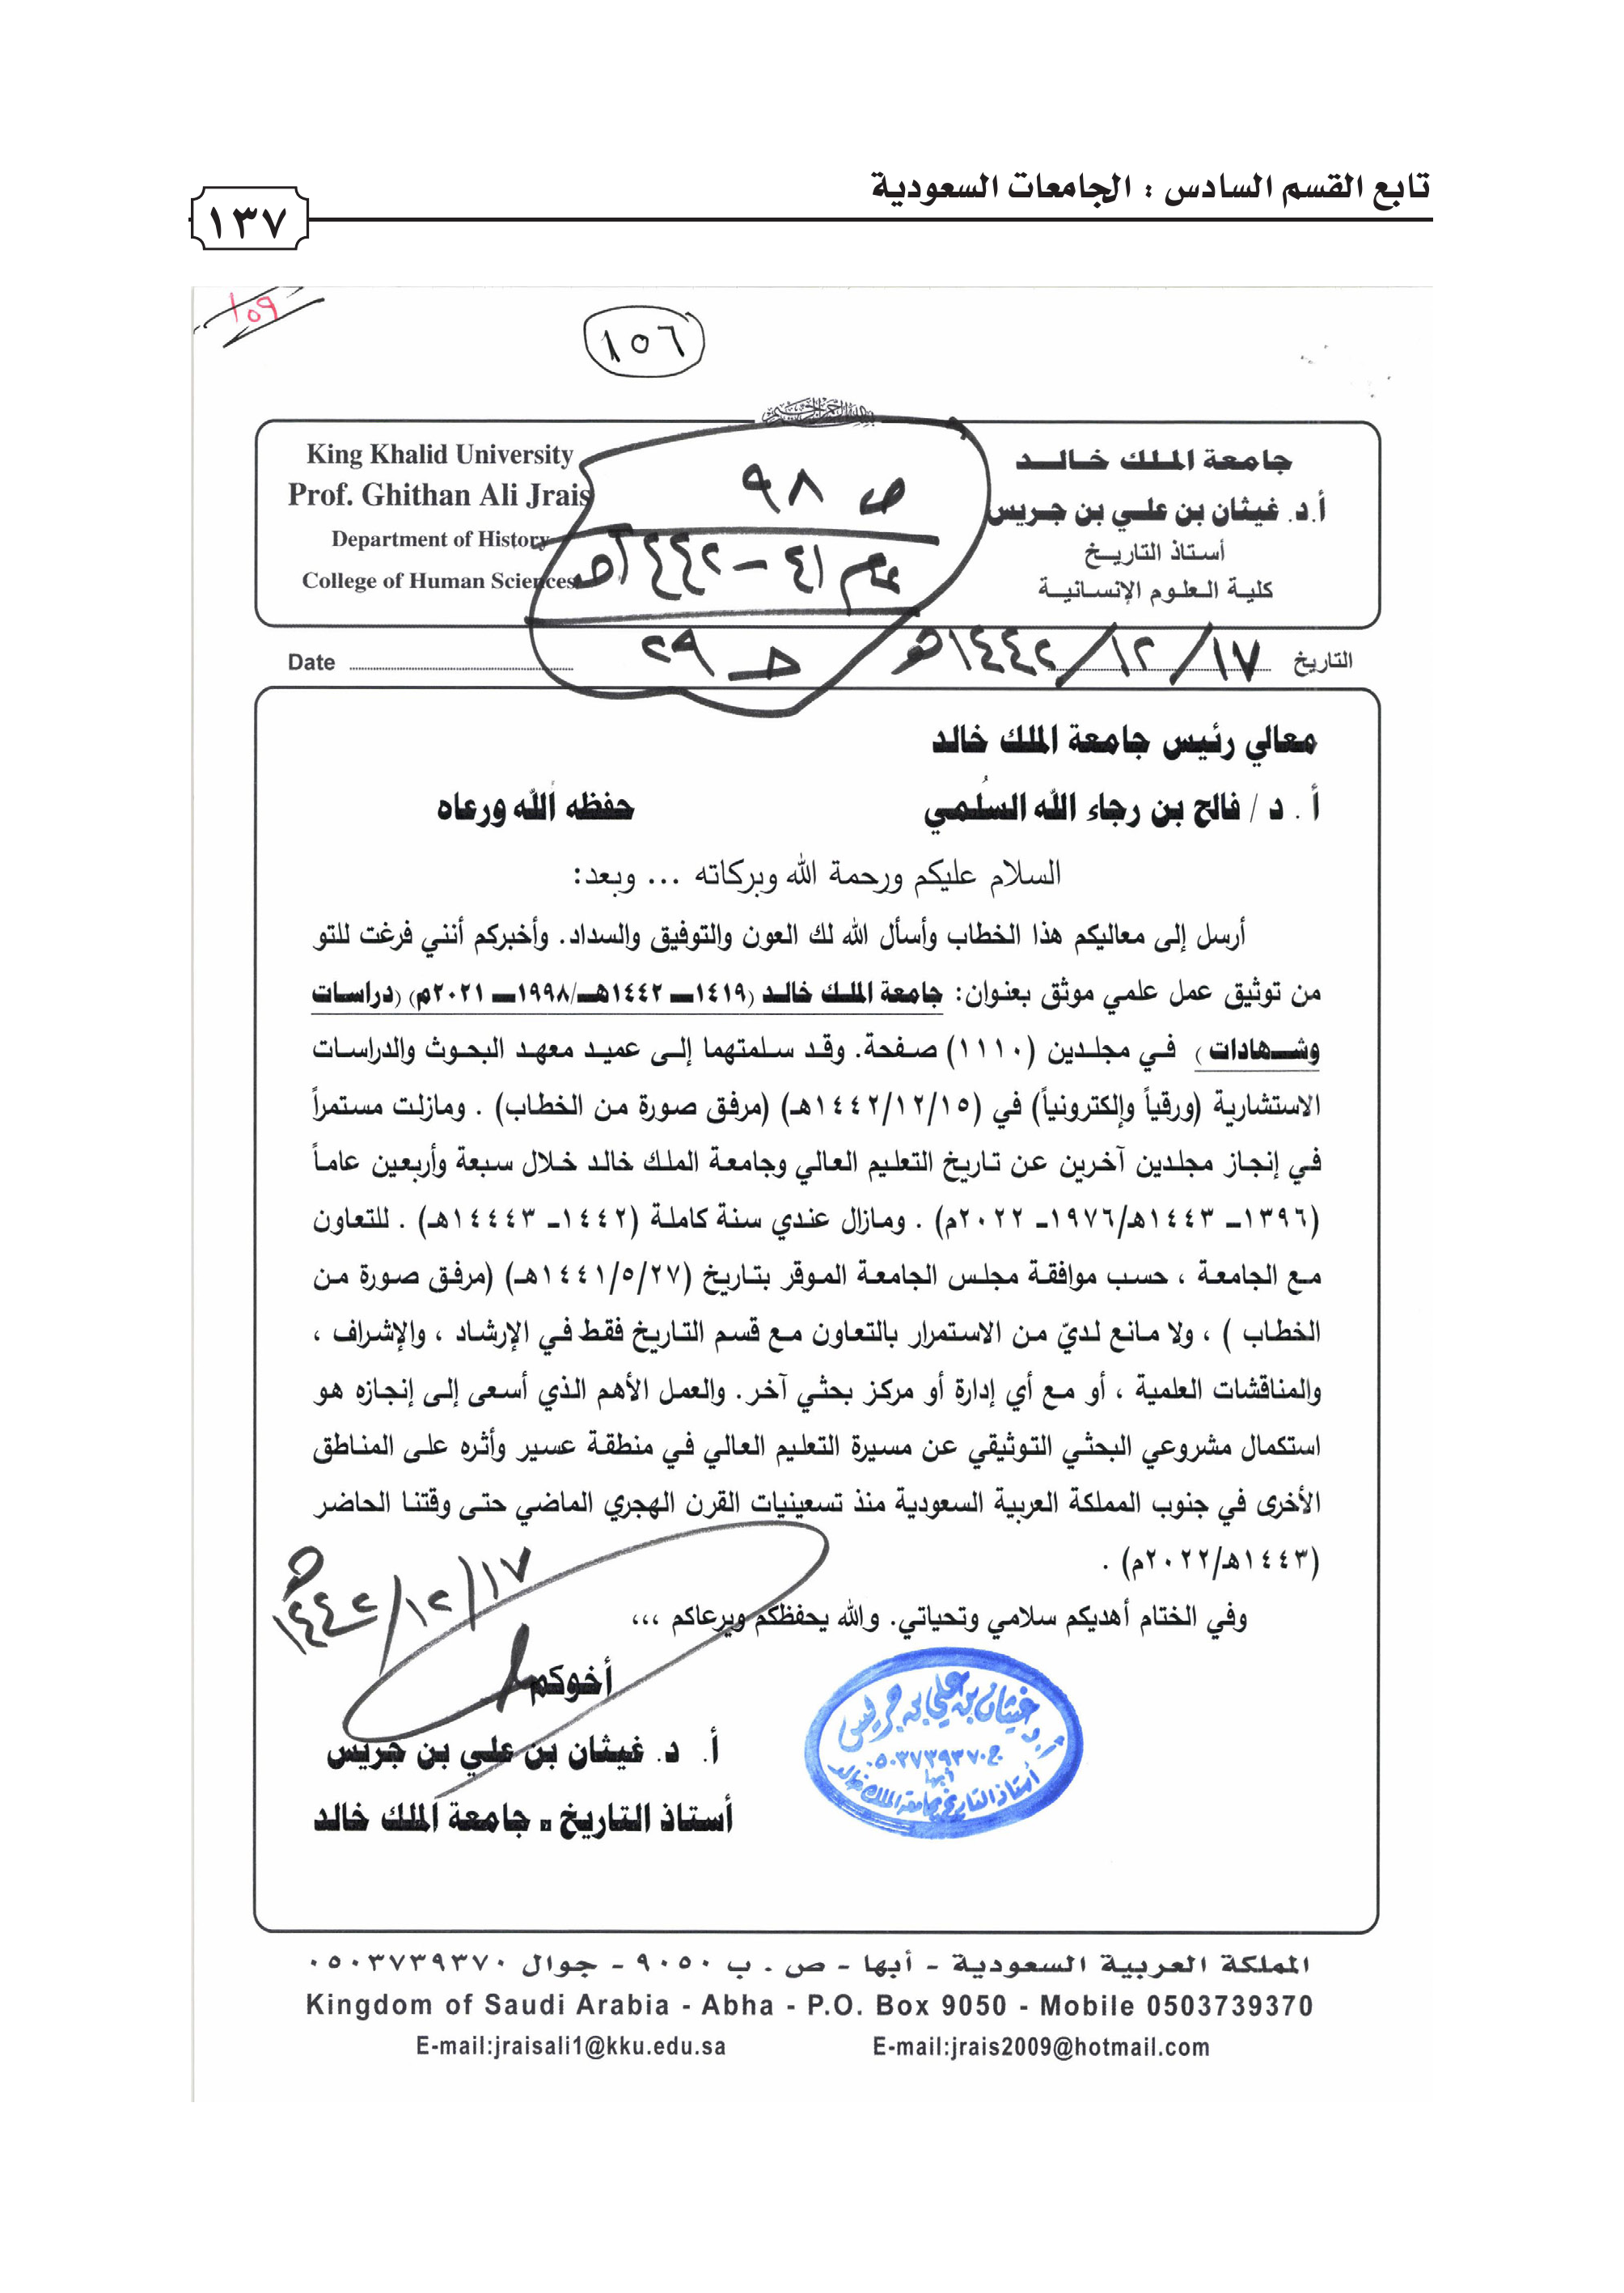 تابع القسم السادس : الجامعات السعودية
١٣٧
١٥٩
١٥٦
بسم الله الرحمن الرحيم
King Khalid University
Prof. Ghithan Ali Jrais
Department of History
College of Human Sciences
ص ٩٨
عام ٤١ – ١٤٤٢هـ
حـ ٢٩
جامعة الملك خالد
أ.د. غيثان بن علي بن جريس
أستاذ التاريخ
كلية العلوم الإنسانية
التاريخ ١٤٤٢/١٢/١٧هـ
Date
معالي رئيس جامعة الملك خالد
أ . د / فالح بن رجاء الله السُلمي حفظه الله ورعاه
السلام عليكم ورحمة الله وبركاته ... وبعد:
أرسل إلى معاليكم هذا الخطاب وأسأل الله لك العون والتوفيق والسداد. وأخبركم أنني فرغت للتو
من توثيق عمل علمي موثق بعنوان: جامعة الملك خالد (١٤١٩ــ ١٤٤٢هـ/١٩٩٨ــ ٢٠٢١م) (دراسات
وشهادات ) في مجلدين (١١١٠) صفحة. وقد سلمتهما إلى عميد معهد البحوث والدراسات
الاستشارية (ورقياً وإلكترونياً) في (١٤٤٢/١٢/١٥هـ) (مرفق صورة من الخطاب) . ومازلت مستمراً
في إنجاز مجلدين آخرين عن تاريخ التعليم العالي وجامعة الملك خالد خلال سبعة وأربعين عاماً
(١٣٩٦ـ ١٤٤٣هـ/١٩٧٦ـ ٢٠٢٢م) . ومازال عندي سنة كاملة (١٤٤٢ـ ١٤٤٤٣هـ) . للتعاون
مع الجامعة ، حسب موافقة مجلس الجامعة الموقر بتاريخ (١٤٤١/٥/٢٧هـ) (مرفق صورة من
الخطاب ) ، ولا مانع لديّ من الاستمرار بالتعاون مع قسم التاريخ فقط في الإرشاد ، والإشراف ،
والمناقشات العلمية ، أو مع أي إدارة أو مركز بحثي آخر. والعمل الأهم الذي أسعى إلى إنجازه هو
استكمال مشروعي البحثي التوثيقي عن مسيرة التعليم العالي في منطقة عسير وأثره على المناطق
الأخرى في جنوب المملكة العربية السعودية منذ تسعينيات القرن الهجري الماضي حتى وقتنا الحاضر
(١٤٤٣هـ/٢٠٢٢م) .
وفي الختام أهديكم سلامي وتحياتي. والله يحفظكم ويرعاكم ،،،
١٤٤٢/١٢/١٧هـ
أخوكم
أ. د. غيثان بن علي بن جريس
أستاذ التاريخ ـ جامعة الملك خالد
أ.د غيثان بن علي بن جريس
ج.٠٥٠٣٧٣٩٣٧٠
أبها
أستاذ التاريخ بجامعة الملك خالد
المملكة العربية السعودية - أبها - ص . ب ٩٠٥٠ - جوال ٠٥٠٣٧٣٩٣٧٠
Kingdom of Saudi Arabia - Abha - P.O. Box 9050 - Mobile 0503739370
E-mail:jraisali1@kku.edu.sa E-mail:jrais2009@hotmail.com